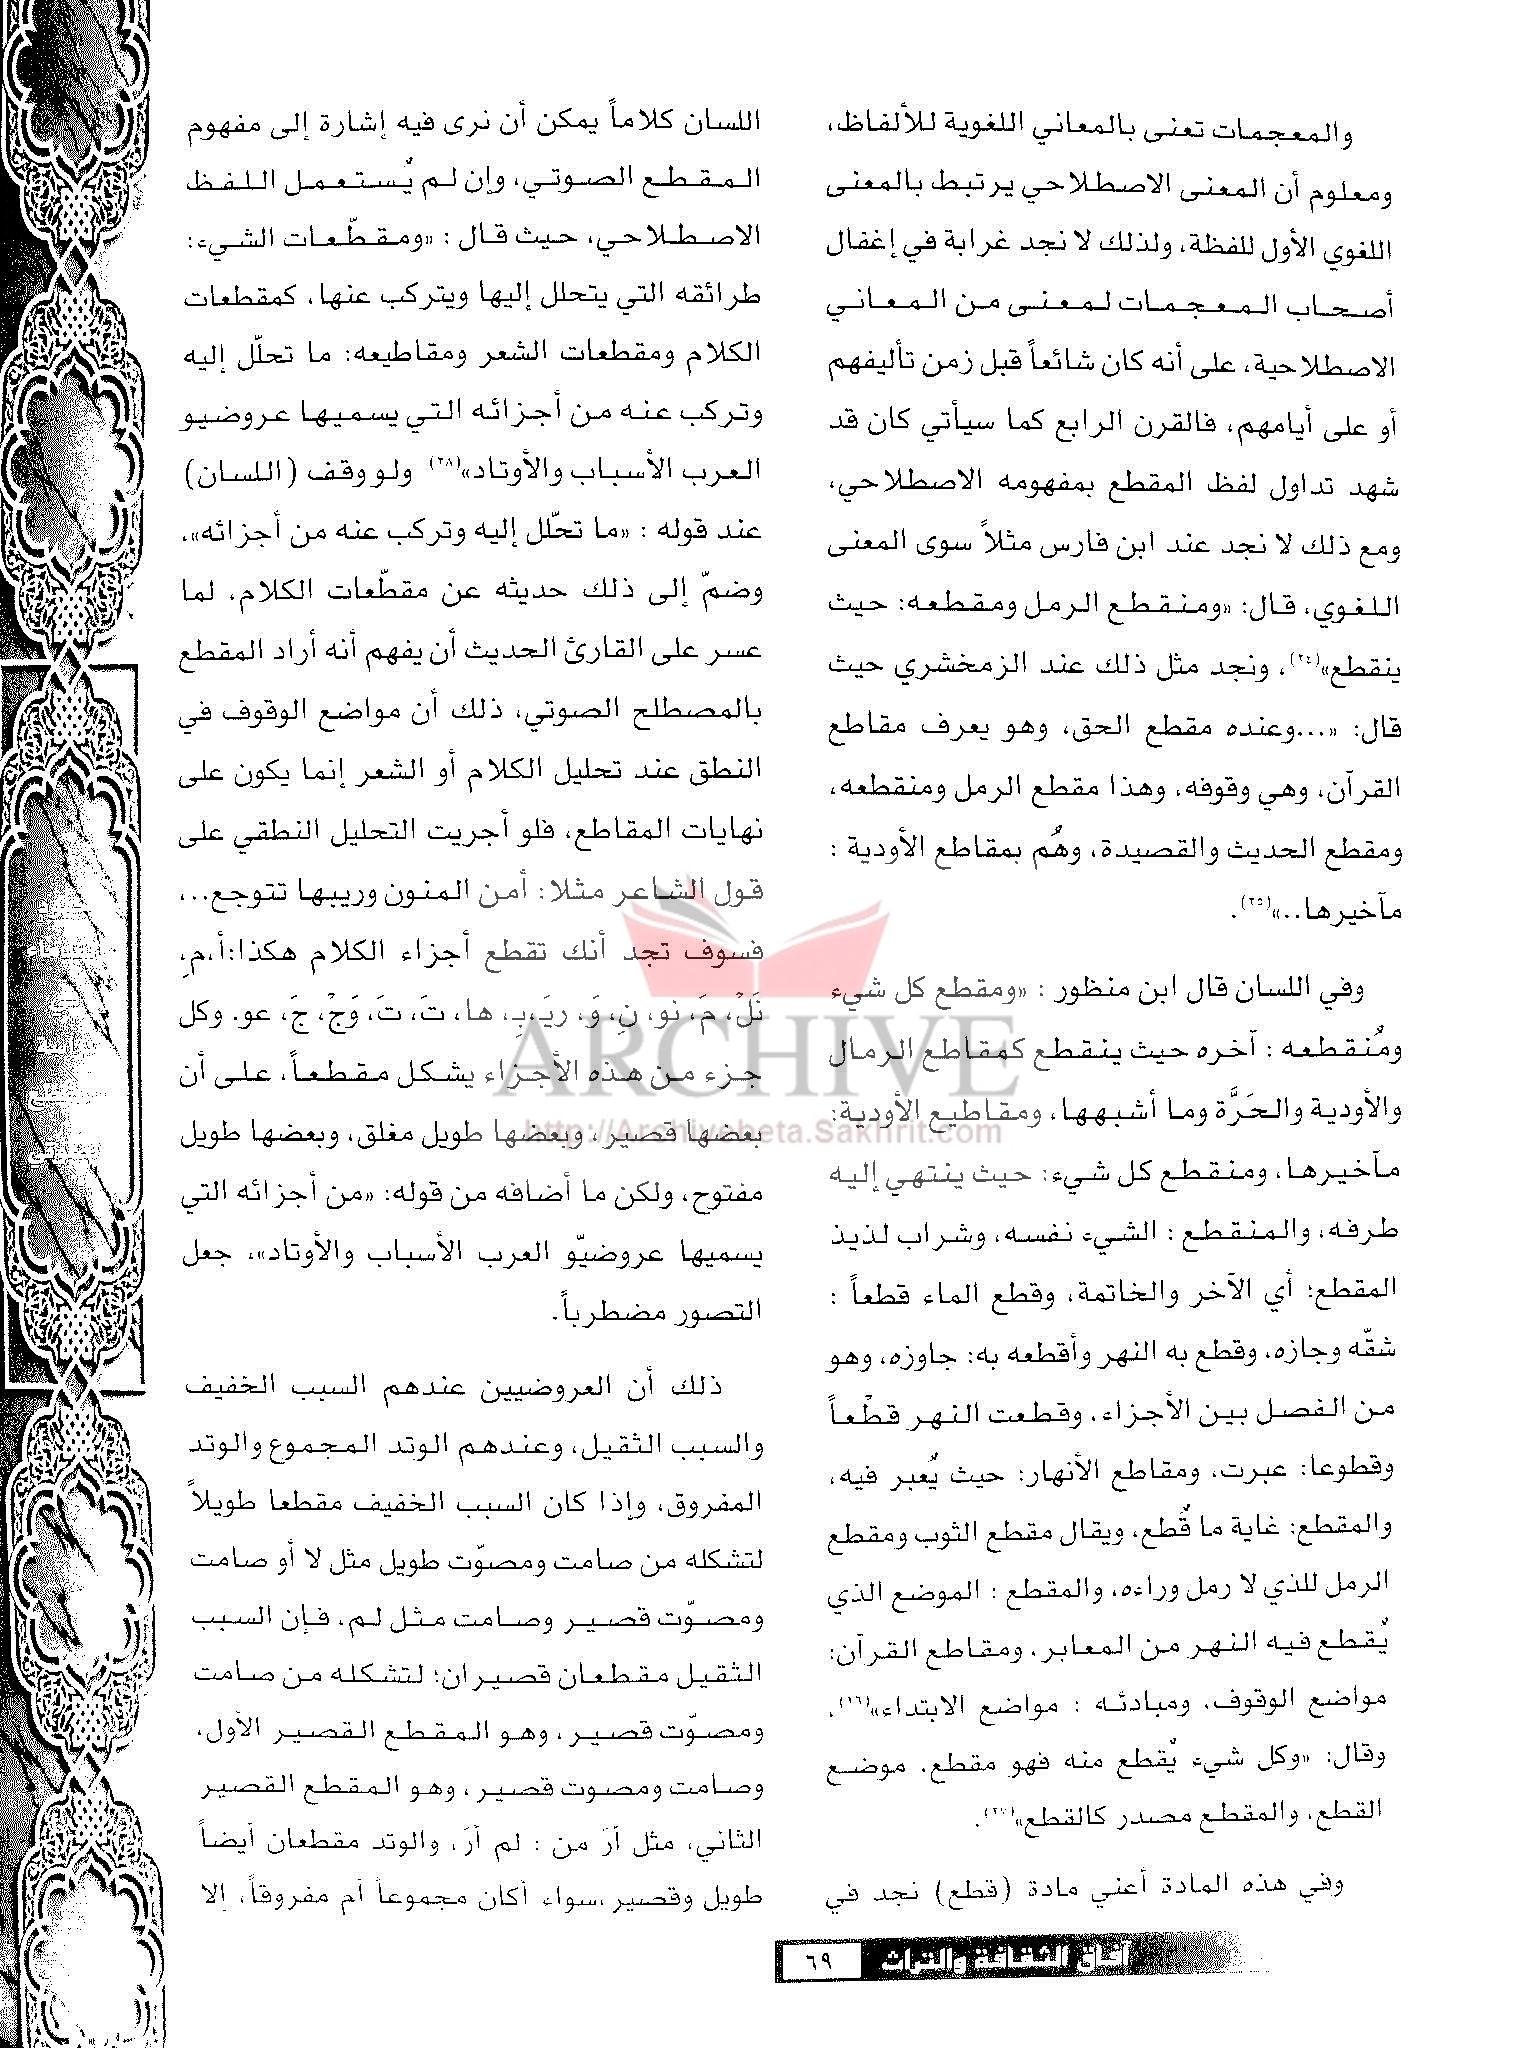 والمعجمات تعنى بالمعاني اللغوية للألفاظ،
ومعلوم أن المعنى الاصطلاحي يرتبط بالمعنى
اللغوي الأول للفظة، ولذلك لا نجد غرابة في إغفال
أصحاب المعجمات لمعنى من المعاني
الاصطلاحية، على أنه كان شائعاً قبل زمن تأليفهم
أو على أيامهم، فالقرن الرابع كما سيأتي كان قد
شهد تداول لفظ المقطع بمفهومه الاصطلاحي،
ومع ذلك لا نجد عند ابن فارس مثلاً سوى المعنى
اللغوي، قال: «ومنقطع الرمل ومقطعه: حيث
ينقطع»(٢٤)، ونجد مثل ذلك عند الزمخشري حيث
قال: «...وعنده مقطع الحق، وهو يعرف مقاطع
القرآن، وهي وقوفه، وهذا مقطع الرمل ومنقطعه،
ومقطع الحديث والقصيدة، وهُم بمقاطع الأودية :
مآخيرها..»(٢٥).
وفي اللسان قال ابن منظور : «ومقطع كل شيء
ومُنقطعه : آخره حيث ينقطع كمقاطع الرمال
والأودية والحَرَّة وما أشبهها، ومقاطيع الأودية:
مآخيرها، ومنقطع كل شيء: حيث ينتهي إليه
طرفه، والمنقطع : الشيء نفسه، وشراب لذيذ
المقطع: أي الآخر والخاتمة، وقطع الماء قطعاً :
شقّه وجازه، وقطع به النهر وأقطعه به: جاوزه، وهو
من الفصل بين الأجزاء، وقطعت النهر قطْعاً
وقطوعا: عبرت، ومقاطع الأنهار: حيث يُعبر فيه،
والمقطع: غاية ما قُطع، ويقال مقطع الثوب ومقطع
الرمل للذي لا رمل وراءه، والمقطع : الموضع الذي
يُقطع فيه النهر من المعابر، ومقاطع القرآن:
مواضع الوقوف، ومبادئه : مواضع الابتداء»(٢٦)،
وقال: «وكل شيء يُقطع منه فهو مقطع، موضع
القطع، والمقطع مصدر كالقطع»(٢٧).
وفي هذه المادة أعني مادة (قطع) نجد في
اللسان كلاماً يمكن أن نرى فيه إشارة إلى مفهوم
المقطع الصوتي، وإن لم يُستعمل اللفظ
الاصطلاحي، حيث قال : «ومقطّعات الشيء:
طرائقه التي يتحلل إليها ويتركب عنها، كمقطعات
الكلام ومقطعات الشعر ومقاطيعه: ما تحلّل إليه
وتركب عنه من أجزائه التي يسميها عروضيو
العرب الأسباب والأوتاد»(٢٨) ولو وقف (اللسان)
عند قوله : «ما تحلّل إليه وتركب عنه من أجزائه»،
وضمّ إلى ذلك حديثه عن مقطّعات الكلام، لما
عسر على القارئ الحديث أن يفهم أنه أراد المقطع
بالمصطلح الصوتي، ذلك أن مواضع الوقوف في
النطق عند تحليل الكلام أو الشعر إنما يكون على
نهايات المقاطع، فلو أجريت التحليل النطقي على
قول الشاعر مثلا: أمن المنون وريبها تتوجع..،
فسوف تجد أنك تقطع أجزاء الكلام هكذا:أ،مِ،
نَلْ، مَ، نو، نِ، وَ، ريَـ،بِـ، ها، تَ، تَ، وَجْ، جَ، عو. وكل
جزء من هذه الأجزاء يشكل مقطعاً، على أن
بعضها قصير، وبعضها طويل مغلق، وبعضها طويل
مفتوح، ولكن ما أضافه من قوله: «من أجزائه التي
يسميها عروضيّو العرب الأسباب والأوتاد»، جعل
التصور مضطرباً.
ذلك أن العروضيين عندهم السبب الخفيف
والسبب الثقيل، وعندهم الوتد المجموع والوتد
المفروق، وإذا كان السبب الخفيف مقطعا طويلاً
لتشكله من صامت ومصوّت طويل مثل لا أو صامت
ومصوّت قصير وصامت مثل لم، فإن السبب
الثقيل مقطعان قصيران؛ لتشكله من صامت
ومصوّت قصير، وهو المقطع القصير الأول،
وصامت ومصوت قصير، وهو المقطع القصير
الثاني، مثل أرَ من : لم أرَ، والوتد مقطعان أيضاً
طويل وقصير ،سواء أكان مجموعاً أم مفروقاً، إلا
ARCHIVE
http://Archivebeta.Sakhrit.com
آفاق الثقافة والتراث ٦٩